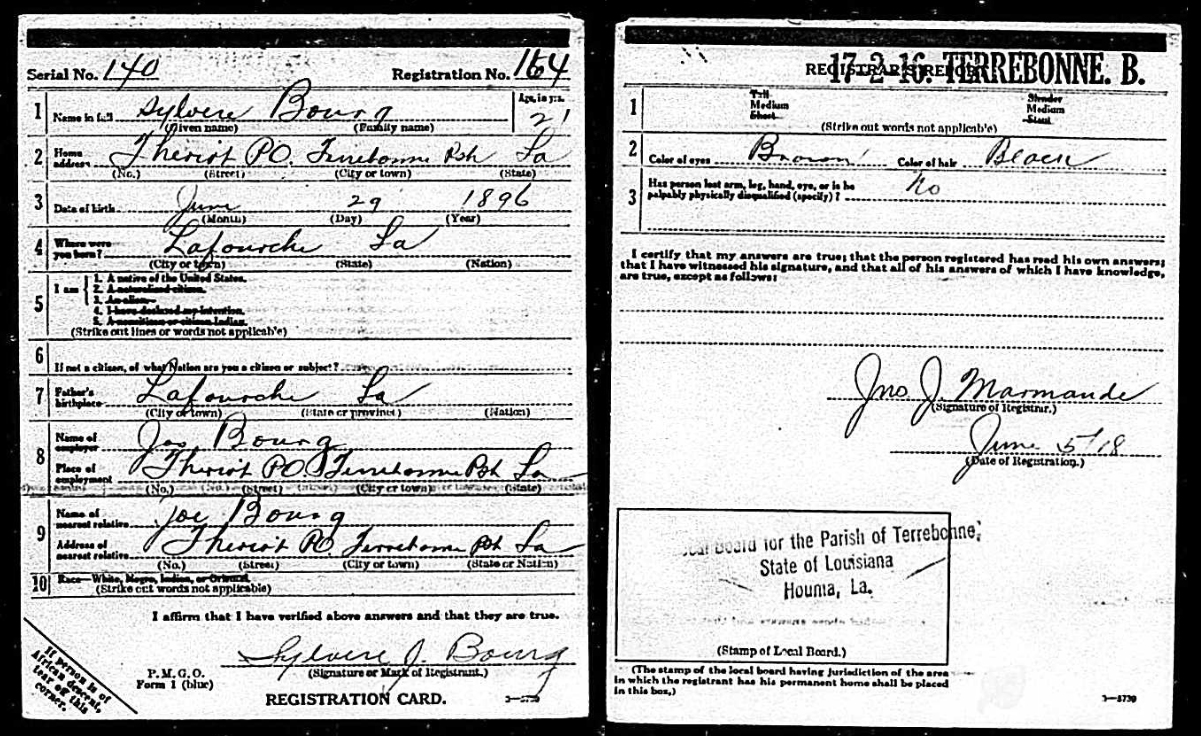 Serial No. 140 Registration No. 164
1 Name in full Sylvere Bourg Age, in yrs. 21
(Given name) (Family name)
2 Home address Theriot PO. Terrebonne Psh La
(No.) (Street) (City or town) (State)
3 Date of birth June 29 1896
(Month) (Day) (Year)
4 Where were you born? Lafourche La
(City or town) (State) (Nation)
5 I am
1. A native of the United States.
2. A naturalized citizen.
3. An alien
4. I have declared my intention.
5. A noncitizen or citizen Indian.
(Strike out lines or words not applicable)
6 If not a citizen, of what Nation are you a citizen or subject?
7 Father's birthplace Lafourche La
(City or town) (State or province) (Nation)
8 Name of employer Jos Bourg
Place of employment Theriot PO. Terrebonne Psh La
(No.) (Street) (City or town) (State)
9 Name of nearest relative Joe Bourg
Address of nearest relative Theriot PO Terrebonne Psh La
(No.) (Street) (City or town) (State or Nation)
10 Race—White, Negro, Indian, or Oriental
(Strike out words not applicable)
I affirm that I have verified above answers and that they are true.
Sylvere J. Bourg
P. M. G. O.
Form 1 (blue)
(Signature or Mark of Registrant.)
REGISTRATION CARD.
If person is of
African descent,
tear off this
corner.
17-2-16. TERREBONNE. B.
REGISTRAR'S REPORT
1 Tall Medium Short Slender Medium Stout
(Strike out words not applicable)
2 Color of eyes Brown Color of hair Black
3 Has person lost arm, leg, hand, eye, or is he
palpably physically disqualified (specify)? No
I certify that my answers are true; that the person registered has read his own answers;
that I have witnessed his signature, and that all of his answers of which I have knowledge,
are true, except as follows:
Jno J. Marmande
(Signature of Registrar.)
June 5/18
(Date of Registration.)
Local Board for the Parish of Terrebonne,
State of Louisiana
Houma, La.
(Stamp of Local Board.)
(The stamp of the local board having jurisdiction of the area
in which the registrant has his permanent home shall be placed
in this box.)
3—5739